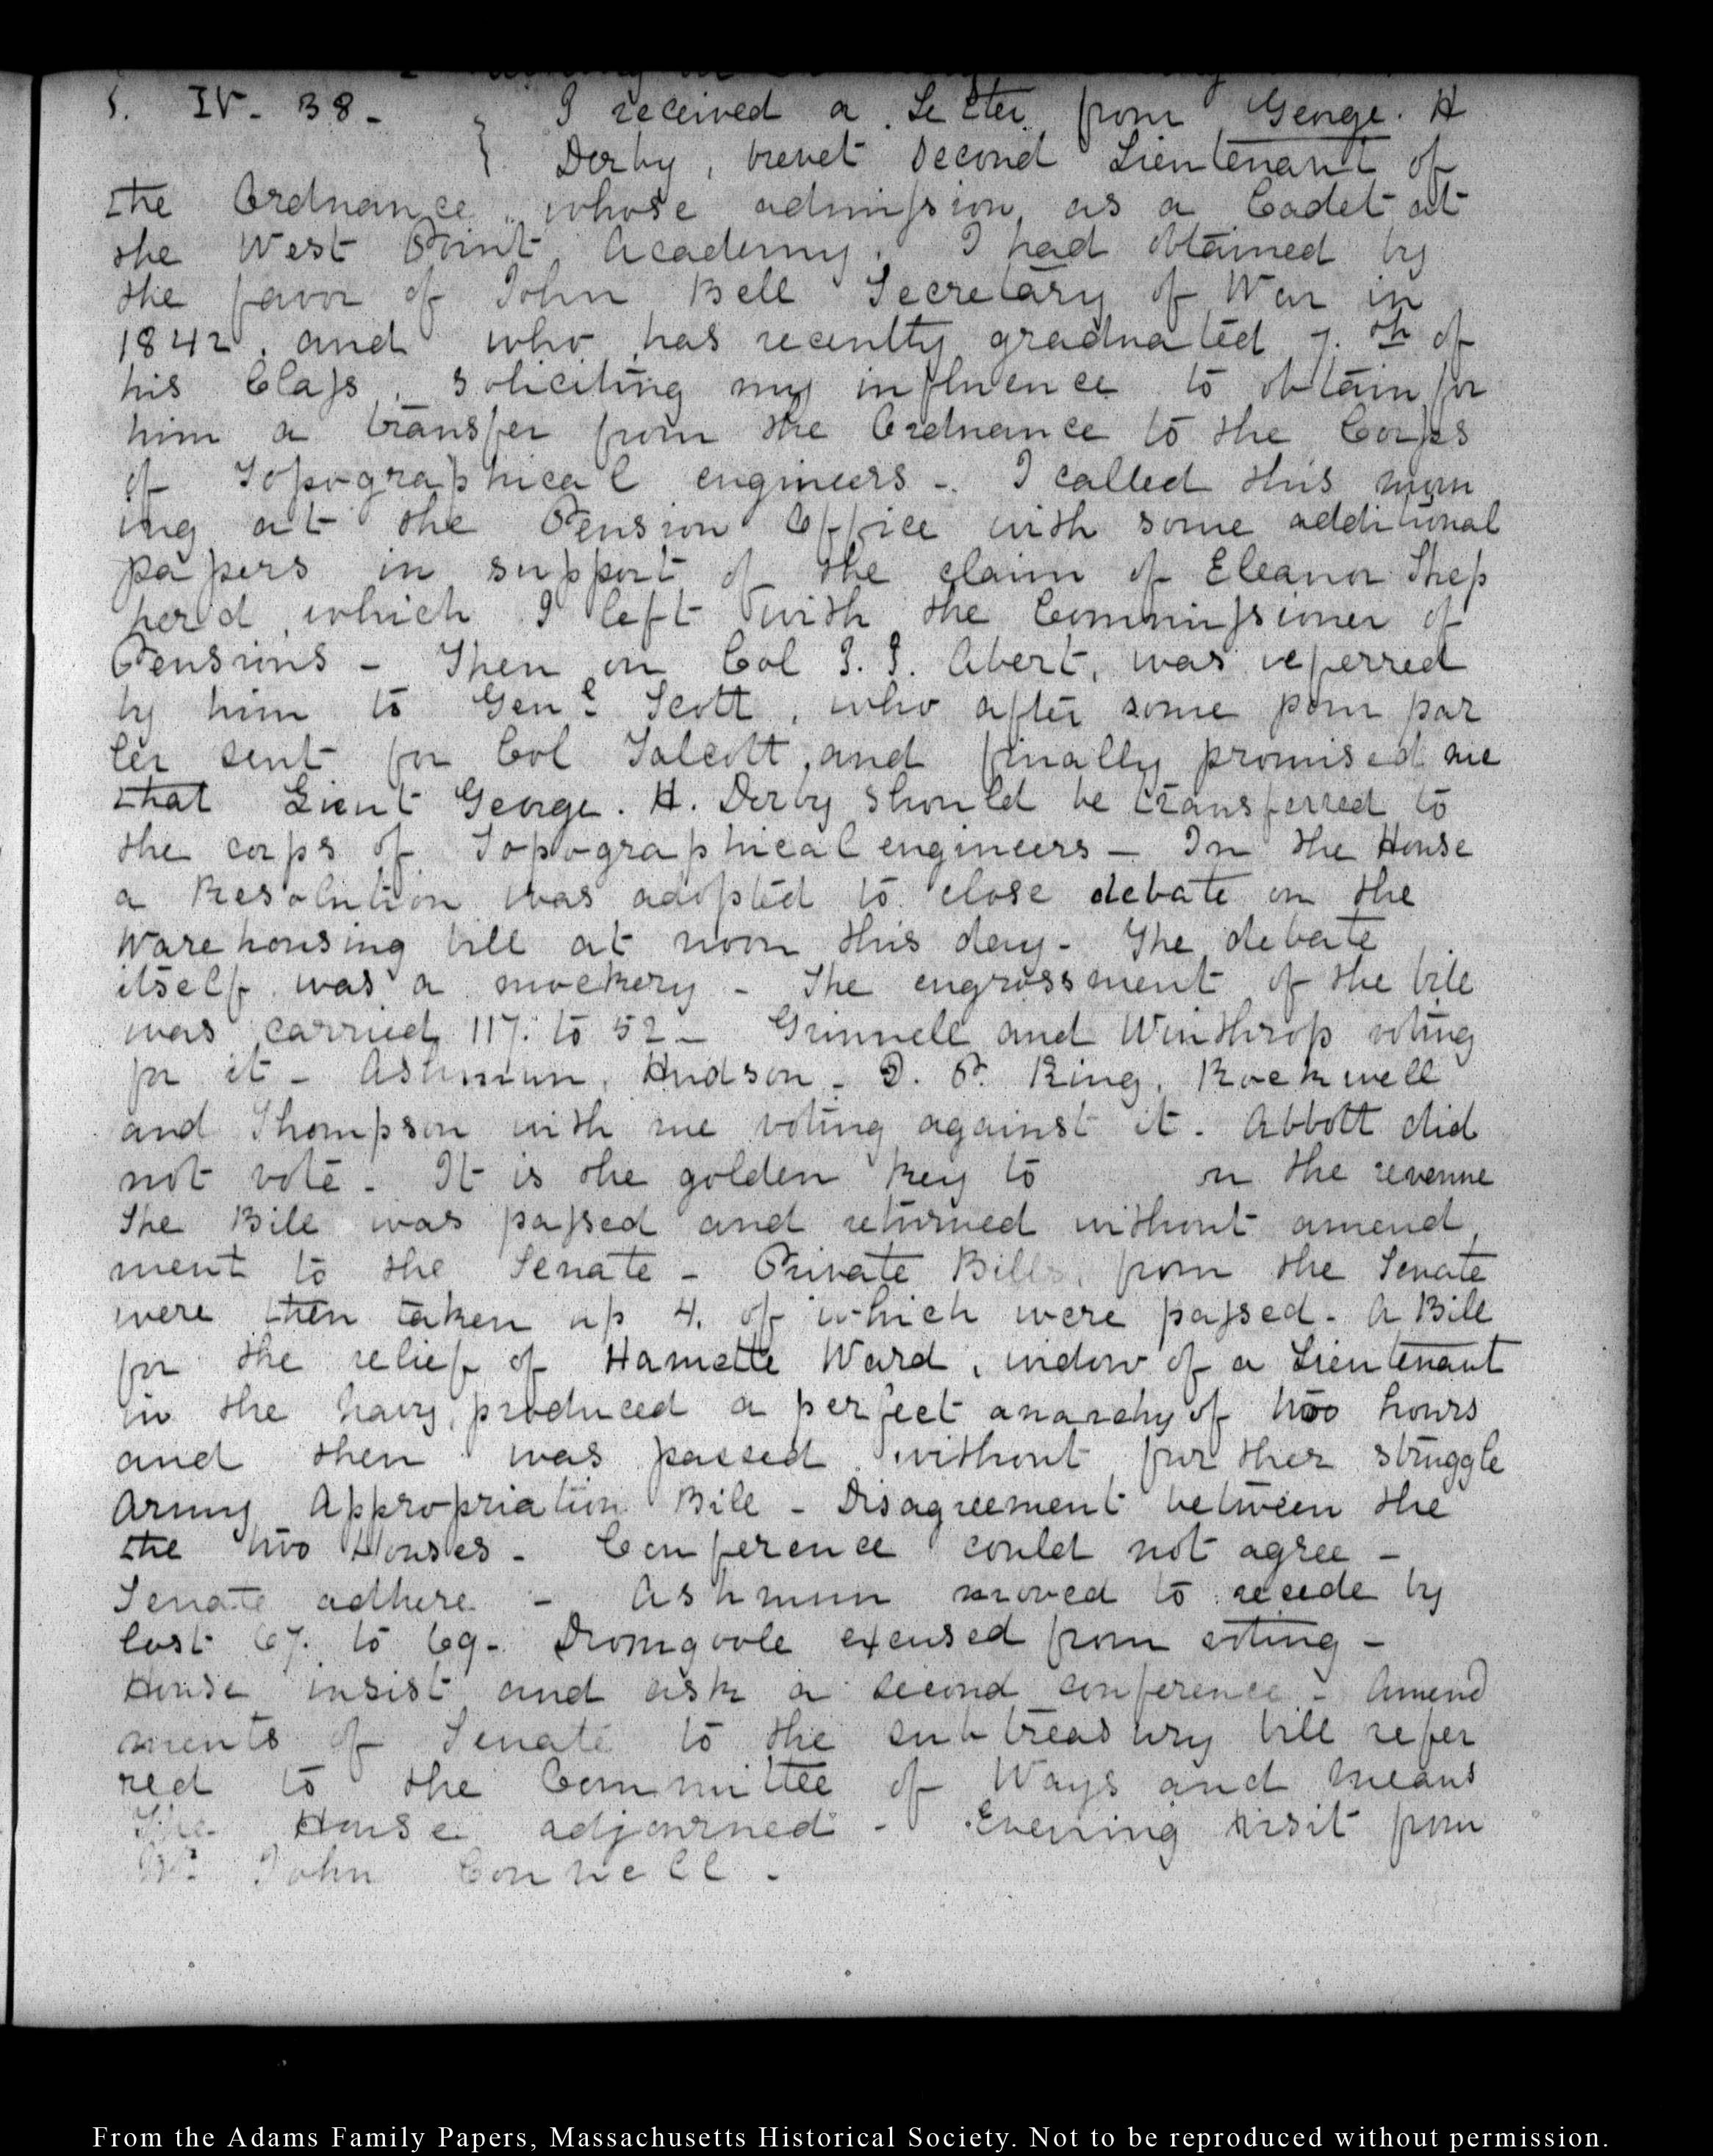 5. IV. 38. I received a Letter from George. H
Derby, brevet Second Lieutenant of
the Ordnance whose admission as a Cadet at
the West Point Academy. I had obtained by
the favor of John Bell Secretary of War in
1842. and who has recently graduated 7.th of
his Class, soliciting my influence to obtain for
him a transfer from the Ordnance to the Corps
of Topographical engineers -. I called this morn
ing at the Pension Office with some additional
papers in support of the claim of Eleanor Shep
perd, which I left with the Commissioner of
Pensions - Then on Col J. J. Abert, was referred
by him to Genl. Scott, who after some pour par
ler sent for Col Talcott, and finally promised me
that Lieut George. H. Derby should be transferred to
the corps of Topographical engineers - In the House
a Resolution was adopted to close debate on the
Warehousing bill at noon this day - The debate
itself was a mockery - The engrossment of the bill
was carried 117. to 52 - Grinnell and Winthrop voting
for it - Ashmun, Hudson - D. P. King, Rockwell
and Thompson with me voting against it. Abbott did
not vote. It is the golden key to on the revenue
The Bill was passed and returned without amend
ment to the Senate - Private Bills, from the Senate
were then taken up 4. of which were passed. A Bill
for the relief of Ward, widow of a Lieutenant
in the Navy, produced a perfect anarchy of two hours
and then was passed without further struggle
Army Appropriation Bill - Disagreement between the
the two Houses - Conference could not agree -
Senate adhere - Ashmun moved to recede by
lost 67. to 69 - Dromgoole excused from voting -
House insist and ask a second conference - Amend
ments of Senate to the subtreasury bill refer
red to the Committee of Ways and Means
The House adjourned - Evening visit from
Mr. John Connell -
From the Adams Family Papers, Massachusetts Historical Society. Not to be reproduced without permission.